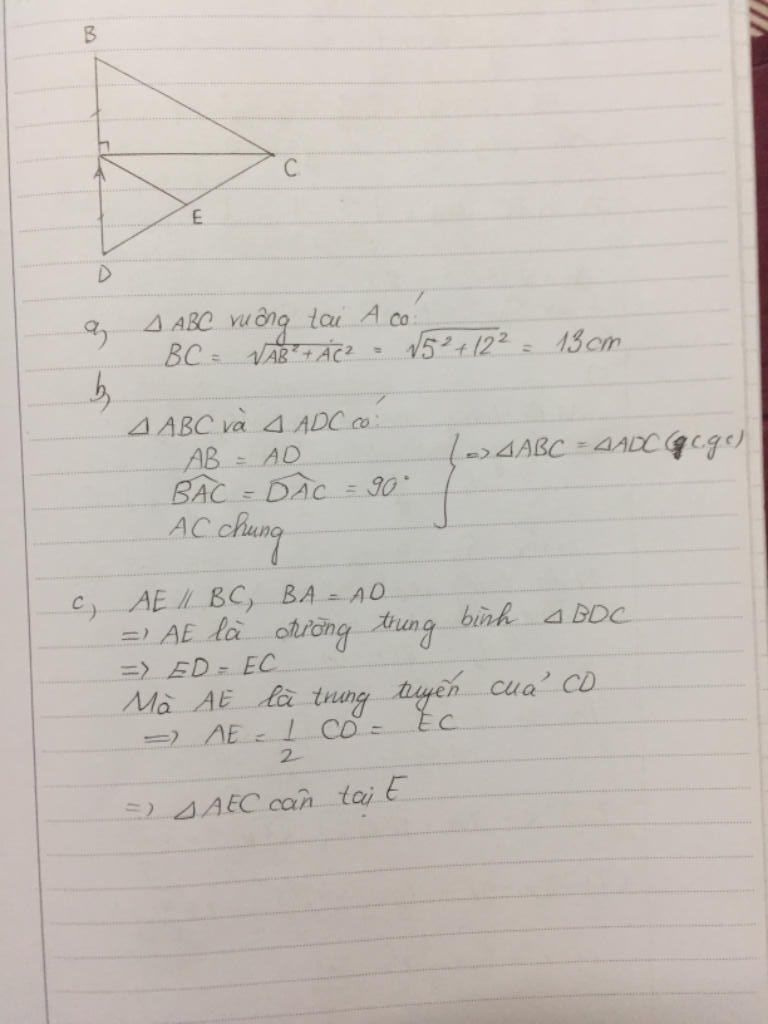 B
A
C
E
D
a, △ABC vuông tại A có:
BC = √AB² + AC² = √5² + 12² = 13cm
b,
△ABC và △ADC có:
AB = AD
BAC = DAC = 90°
AC chung
=> △ABC = △ADC (c.g.c)
c, AE // BC, BA = AD
=> AE là đường trung bình △BDC
=> ED = EC
Mà AE là trung tuyến của CD
=> AE = 1/2 CD = EC
=> △AEC cân tại E